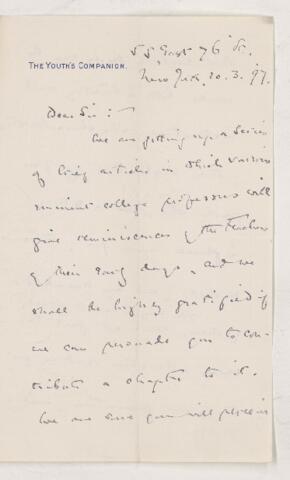 55 East 76 St.
THE YOUTH'S COMPANION.
New York, 20.3.'97.
Dear Sir:
We are getting up a series
of brief articles in which various
eminent college professors will
give reminiscences of the Teachers
of their early days, and we
shall be highly gratified if
we can persuade you to con-
tribute a chapter to it.
We are sure you will